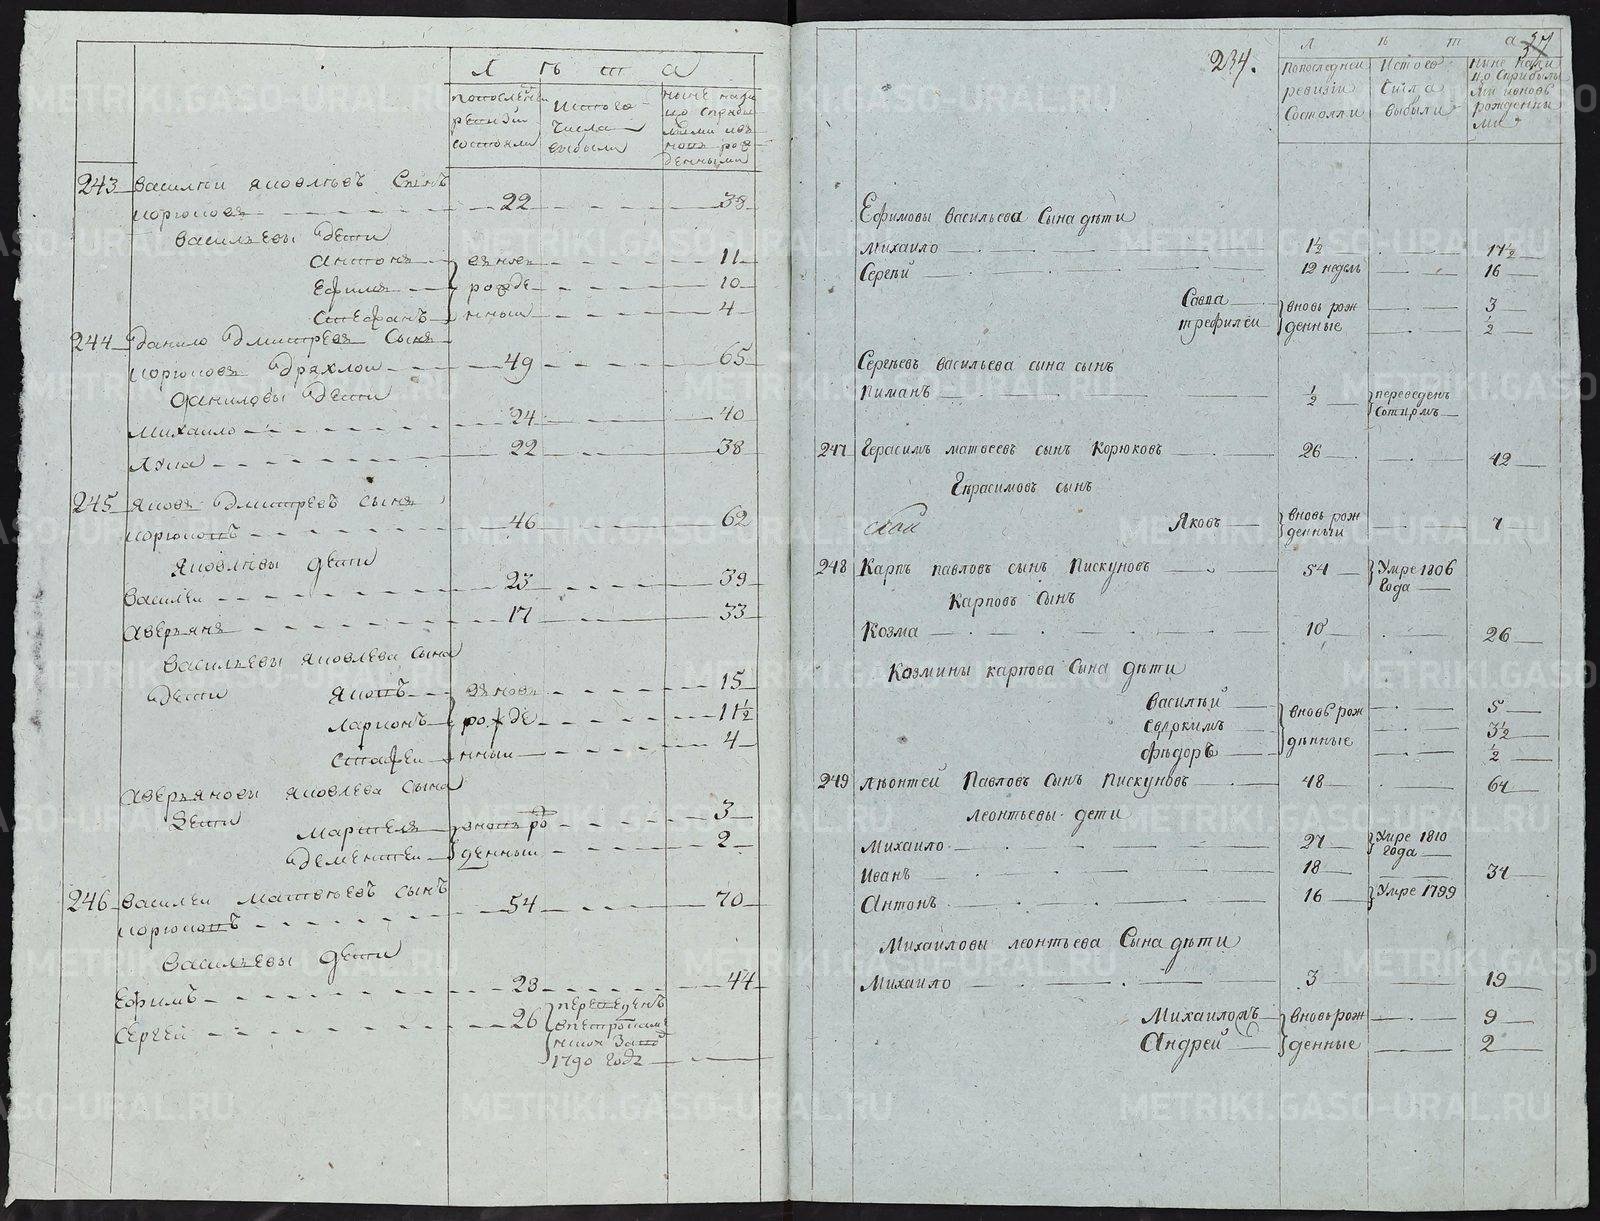 Л ѣ т а
по последней ревизии состояли
Ис того числа выбыли
Ныне нали цо с прибы лыми и в новь рож денными
243 Василѣи Яковлѣвъ Сынъ
Корюковъ 22 38
Васильевы Дети
Антонъ вновь 11
Ефимъ рожде 10
Стефанъ нныи 4
244 Данило Дмитревъ Сынъ
Корюковъ Дряхлои 49 65
Даниловы Дети
Михаило 24 40
Лука 22 38
245 Яковъ Дмитревъ сынъ
Корюковъ 46 62
Яковлѣвы дети
Василеи 23 39
Аверьянъ 17 33
Васильевы Яковлева сына
Дети Яковъ вновь 15
Ларионъ рожде 11½
Стафеи нныи 4
Аверьяновы Яковлева Сына
Дети Мартемъ вновь ро 3
Дементеи жденныи 2
246 Василеи Матвѣевъ сынъ
Корюковъ 54 70
Васильевы дети
Ефимъ 28 44
Сергеи 26 переведенъ
в петрокаме
нскои Заво
1790 годъ
234.
Л ѣ т а
По последней ревизии Состояли
Ис того Сисла выбыли
Ныне нали цо с прибылы ми и вновь рожденны ми
Ефимовы Васильева Сына дѣти
Михаило 1½ 17½
Сергѣй 12 недель 16
Савва вновь рож 3
трефилеи денные ½
Сергѣевъ Васильева сына сынъ
Пиманъ ½ переведенъ
Сотцомъ
247 Герасимъ матвеевъ сынъ Корюковъ 26 42
Герасимовъ сынъ
Яковъ вновь рож 7
денныи
248 Карпъ павловъ сынъ Пискуновъ 54 Умре 1806
Года
Карповъ Сынъ
Козма 10 26
Козмины карпова Сына дѣти
Василѣй вновь рож 5
Евдокимъ 3½
Фѣдоръ дѣнные ½
249 Лѣонтей Павловъ Сынъ Пискуновъ 48 64
Леонтьевы дети
Михаило 27 Умре 1810
Года
Иванъ 18 34
Антонъ 16 Умре 1799
Михаиловы леонтьева Сына дѣти
Михаило 3 19
Михаиломъ вновь рож 9
Андрей денные 2
METRIKI.GASO-URAL.RU